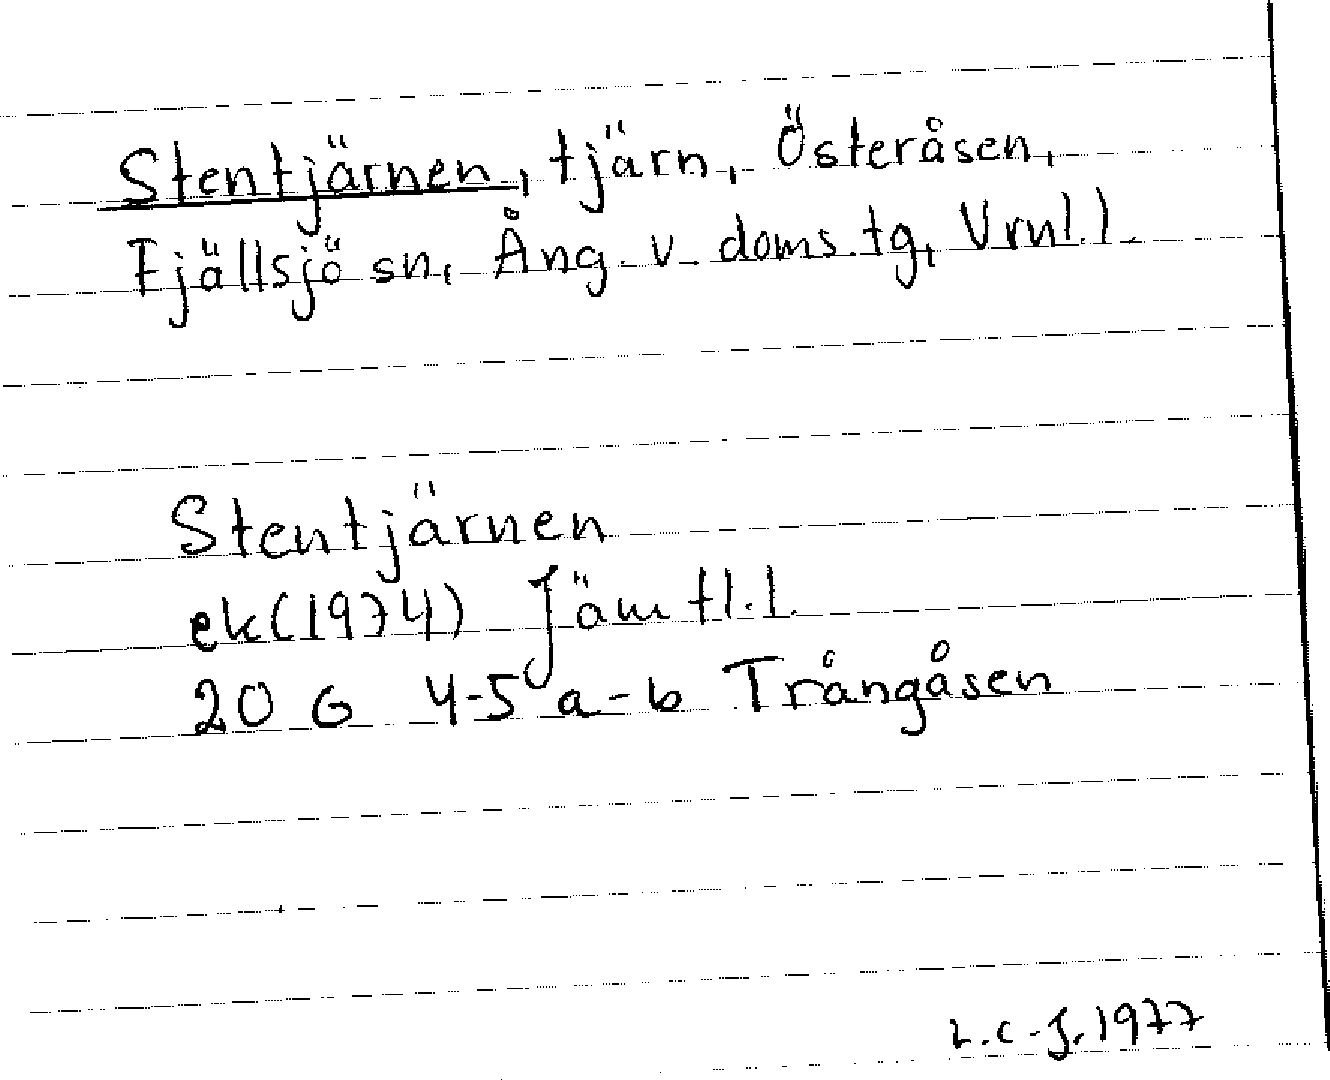 Stentjärnen, tjärn, Österåsen,
Fjällsjö sn, Ång. v. doms.tg, Vrnl.l.
Stentjärnen
ek(1974) Jämtl.l.
20 G 4-5 a-b Trångåsen
L.C-J. 1977